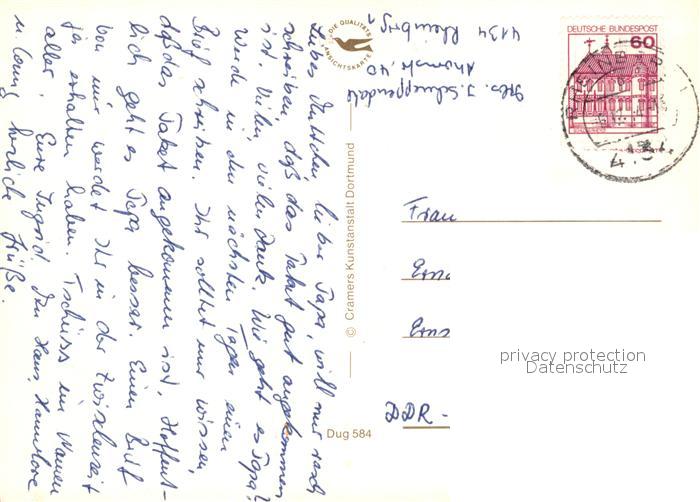 Liebes Muttchen, lieber Papa, will nur rasch
schreiben daß das Paket gut angekommen
ist. Vielen, vielen Dank. Wie geht es Papa?
Werde in den nächsten Tagen einen
Brief schreiben. Ihr solltet nur wissen,
daß das Paket angekommen ist. Hoffent-
lich geht es Papa besser. Einen Brief
von mir werdet Ihr in der Zwischenzeit
ja erhalten haben. Tschüss im Namen
aller, Eure Ingrid. Den Hans, Hannelore
u. herzliche Grüße.
DIE QUALITÄTS
ANSICHTSKARTE
© Cramers Kunstanstalt Dortmund
Dug 584
Abs. J. Schneppendahl
40
4134 Rheinberg 1
DEUTSCHE BUNDESPOST
60
RHEINBERG 1
4134
Frau
DDR -
privacy protection
Datenschutz